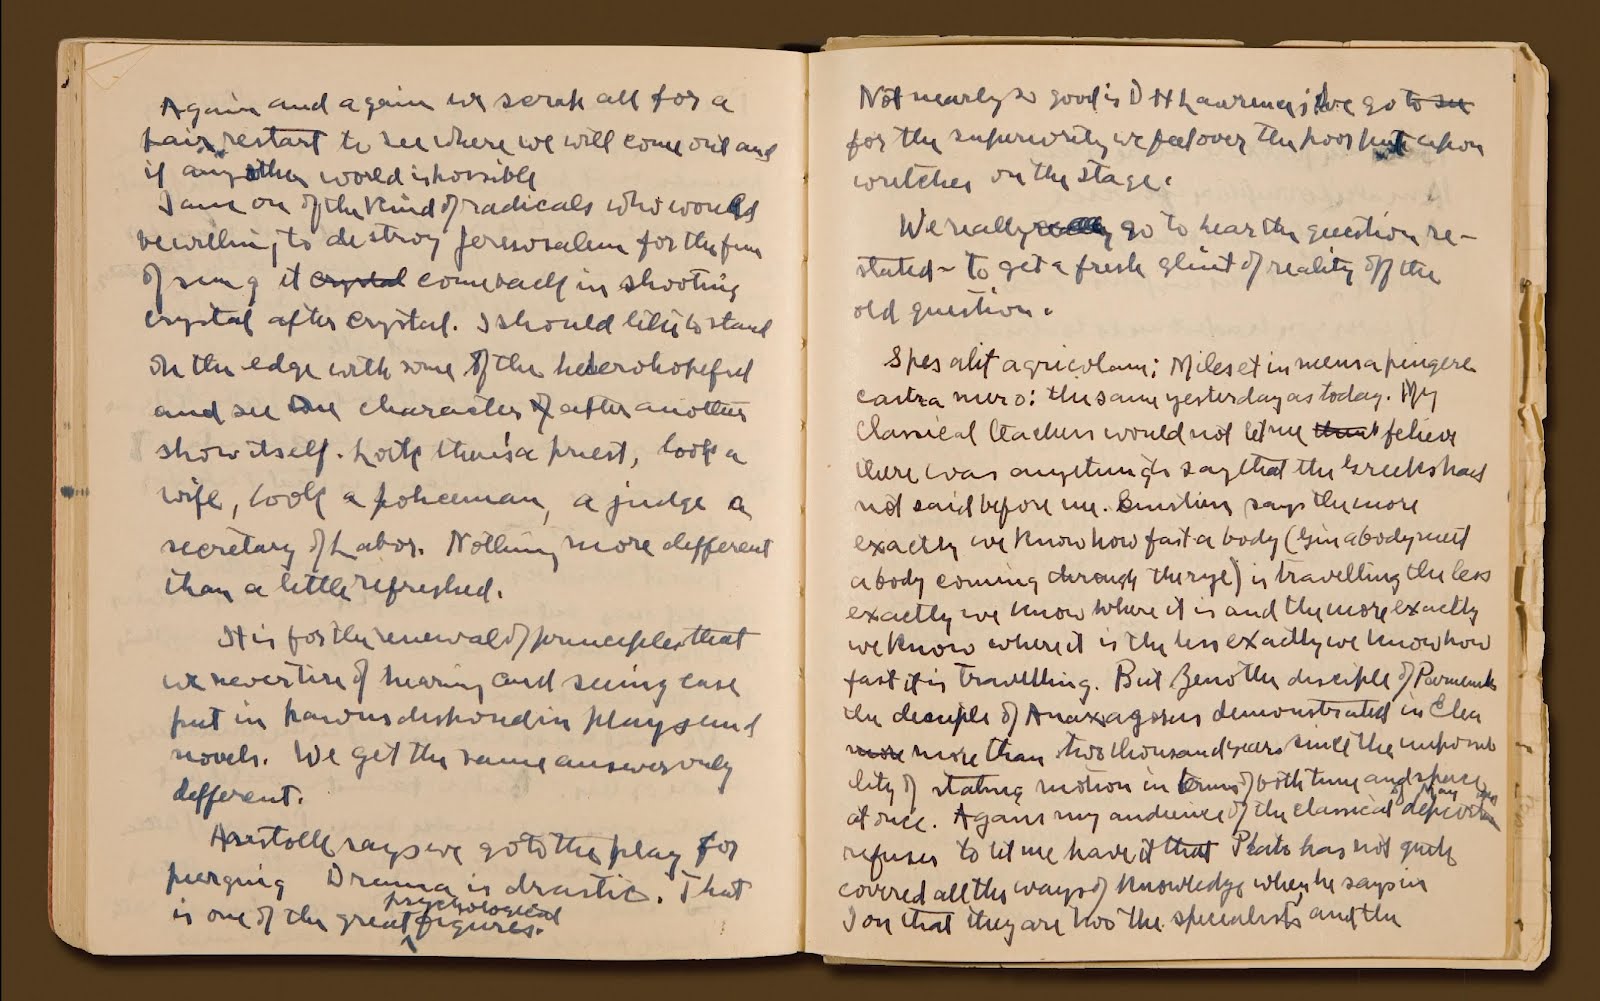 Again and again we scrap all for a
fair restart to see where we will come out and
if any other world is possible
I am on of the kind of radicals who would
be willing to destroy Jerusalem for the fun
of seing it crystal come back in shooting
crystal after crystal. I should like to stand
on the edge with some of the heterohopeful
and see one character of after another
show itself. Look there's a priest, look a
wife, look a policeman, a judge a
secretary of Labor. Nothing more different
than a little refreshed.
It is for the renewal of principles that
we never tire of hearing and seeing case
put in pairs in plays and
novels. We get the same answer only
different.
Aristotle says we go to the play for
purging Drama is drastic. That
is one of the great psychological figures.
Not nearly so good is D H Lawrence; we go to see
for the superiority we feel over the poor put upon
wretches on the stage.
We really really go to hear the question re-
stated - to get a fresh glint of reality off the
old question.
Spes alit agricolam; Miles et in mensa pingere
castra mero: the same yesterday as today. My
Classical teachers would not let me think believe
there was anything to say that the Greeks had
not said before me. Einstein says the more
exactly we know how fast a body (Gin a body meet
a body coming through the rye) is travelling the less
exactly we know where it is and the more exactly
we know where it is the less exactly we know how
fast it is travelling. But Zeno the disciple of Parmenides
the disciple of Anaxagoras demonstrated in Elea
more more than two thousand years since the impossibi
lity of stating motion in terms of both time and space
at once. Again my audience of the classical
refuses to let me have it that Plato has not quite
covered all the ways of knowledge when he says in
Ion that they are two the specialists and the